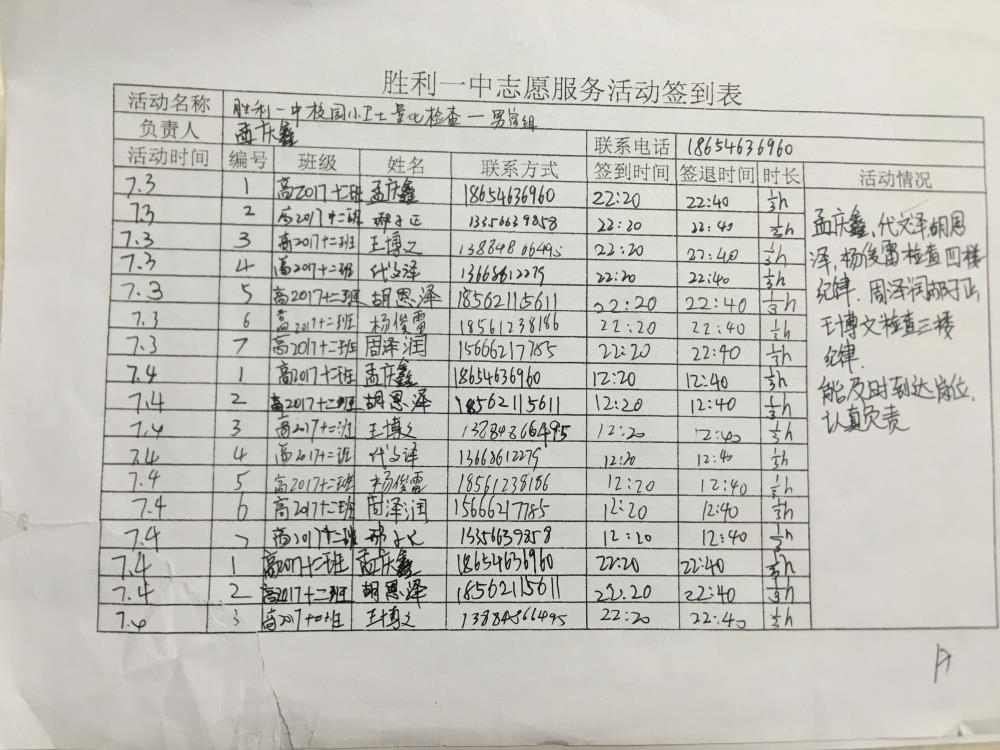 胜利一中志愿服务活动签到表
活动名称 胜利一中校园小卫士量化检查一男宿组
负责人 孟庆鑫 联系电话 18654636960
活动时间 编号 班级 姓名 联系方式 签到时间 签退时间 时长 活动情况
7.3 1 高2017十二班 孟庆鑫 18654636960 22:20 22:40 ⅓h
7.3 2 高2017十二班 郝子正 13356639858 22:20 22:40 ⅓h
7.3 3 高2017十二班 王博文 13884866495 22:20 22:40 ⅓h
7.3 4 高2017十二班 代文泽 13668612279 22:20 22:40 ⅓h
7.3 5 高2017十二班 胡恩泽 18562115611 22:20 22:40 ⅓h
7.3 6 高2017十二班 杨俊雷 18561238186 22:20 22:40 ⅓h
7.3 7 高2017十二班 周泽润 15666217785 22:20 22:40 ⅓h
7.4 1 高2017十二班 孟庆鑫 18654636960 12:20 12:40 ⅓h
7.4 2 高2017十二班 胡恩泽 18562115611 12:20 12:40 ⅓h
7.4 3 高2017十二班 王博文 13884866495 12:20 12:40 ⅓h
7.4 4 高2017十二班 代文泽 13668612279 12:20 12:40 ⅓h
7.4 5 高2017十二班 杨俊雷 18561238186 12:20 12:40 ⅓h
7.4 6 高2017十二班 周泽润 15666217785 12:20 12:40 ⅓h
7.4 7 高2017十二班 郝子正 13356639858 12:20 12:40 ⅓h
7.4 1 高2017十二班 孟庆鑫 18654636960 22:20 22:40 ⅓h
7.4 2 高2017十二班 胡恩泽 18562115611 22:20 22:40 ⅓h
7.4 3 高2017十二班 王博文 13884866495 22:20 22:40 ⅓h
孟庆鑫,代文泽,胡恩
泽,杨俊雷检查四楼
纪律.周泽润郝子正
王博文检查三楼
纪律.
能及时到达岗位,
认真负责